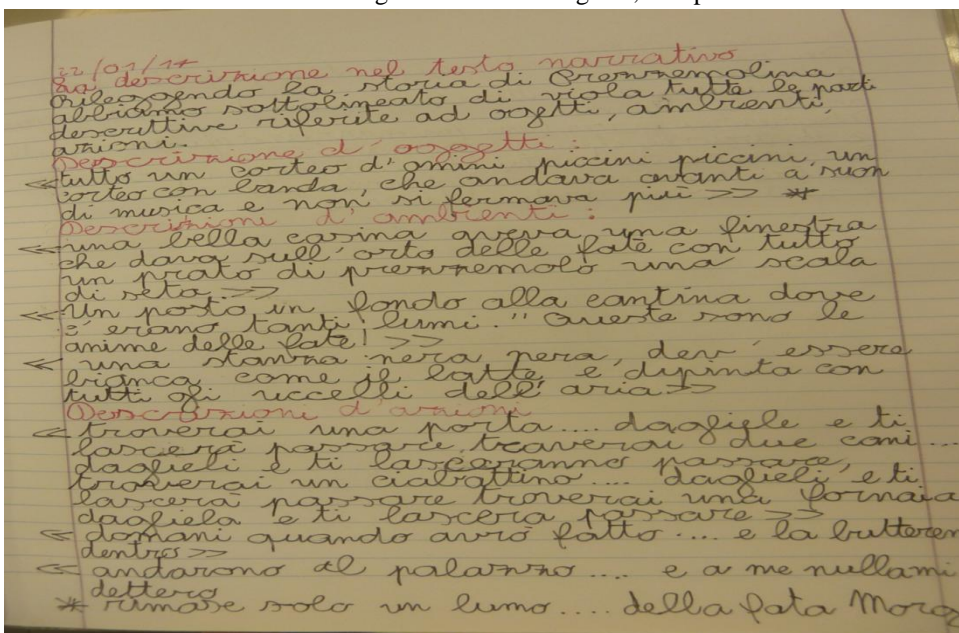 22/01/17
La descrizione nel testo narrativo
Rileggendo la storia di Prezzemolina
abbiamo sottolineato di viola tutte le parti
descrittive riferite ad oggetti, ambienti,
azioni.
Descrizione d'oggetti:
<<tutto un corteo d'omini piccini piccini, un
corteo con banda, che andava avanti a suon
di musica e non si fermava più >> *
Descrizioni d'ambienti:
<<una bella casina aveva una finestra
che dava sull'orto delle fate con tutto
un prato di prezzemolo una scala
di seta.>>
<<Un posto in fondo alla cantina dove
c'erano tanti lumi. "Queste sono le
anime delle fate! >>
<< una stanza nera nera, dev'essere
bianca come il latte e dipinta con
tutti gli uccelli dell'aria>>
Descrizioni d'azioni
<< troverai una porta.... dagliele e ti
lascerà passare, troverai due cani....
daglieli e ti lasceranno passare,
troverai un ciabattino.... daglieli e ti
lascerà passare troverai una fornaia
dagliela e ti lascerà passare >>
<< domani quando avrò fatto .... e la butterem
dentro >>
<< andarono al palazzo .... e a me nulla mi
dettero
* rimase solo un lumo .... della fata Morg